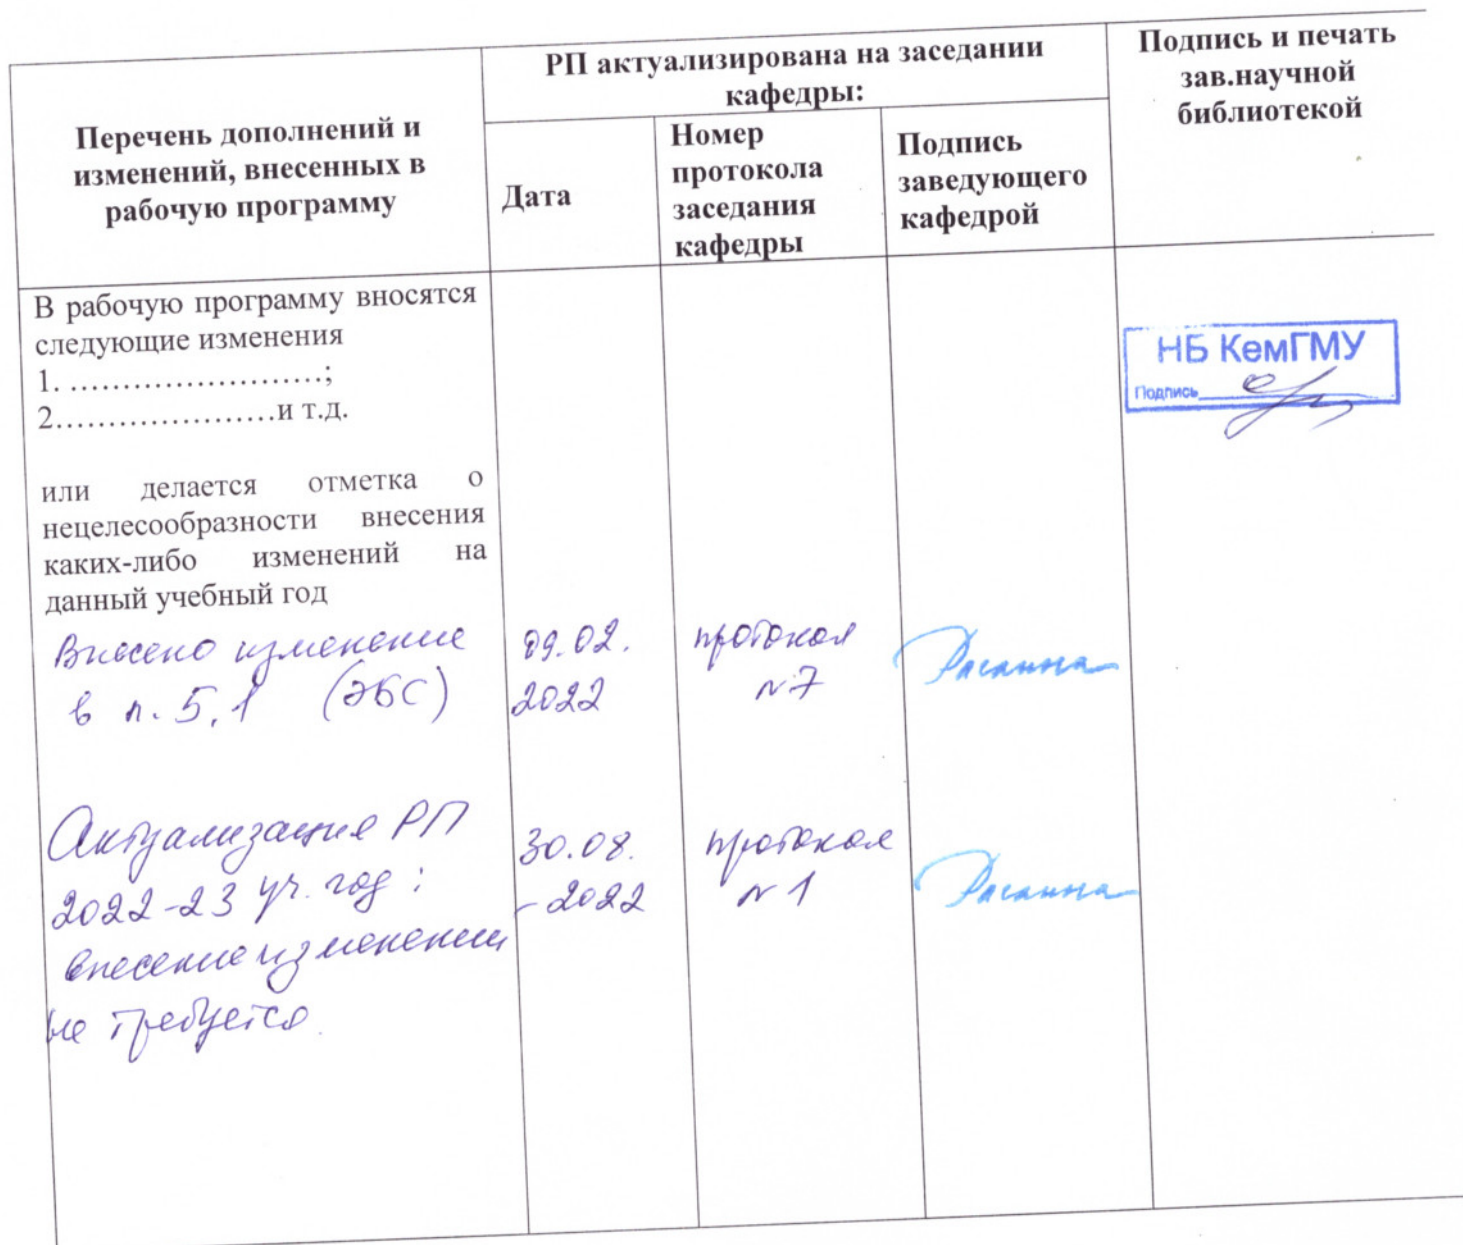 Перечень дополнений и
изменений, внесенных в
рабочую программу
РП актуализирована на заседании
кафедры:
Дата
Номер
протокола
заседания
кафедры
Подпись
заведующего
кафедрой
Подпись и печать
зав.научной
библиотекой
В рабочую программу вносятся
следующие изменения
1. ……………………;
2…………………и т.д.
или делается отметка о
нецелесообразности внесения
каких-либо изменений на
данный учебный год
НБ КемГМУ
Подпись
Внесено изменение
в п. 5.1 (ЭБС)
09.02.
2022
протокол
№7
Актуализация РП
2022-23 уч. год:
внесение изменений
не требуется
30.08.
-2022
протокол
№1